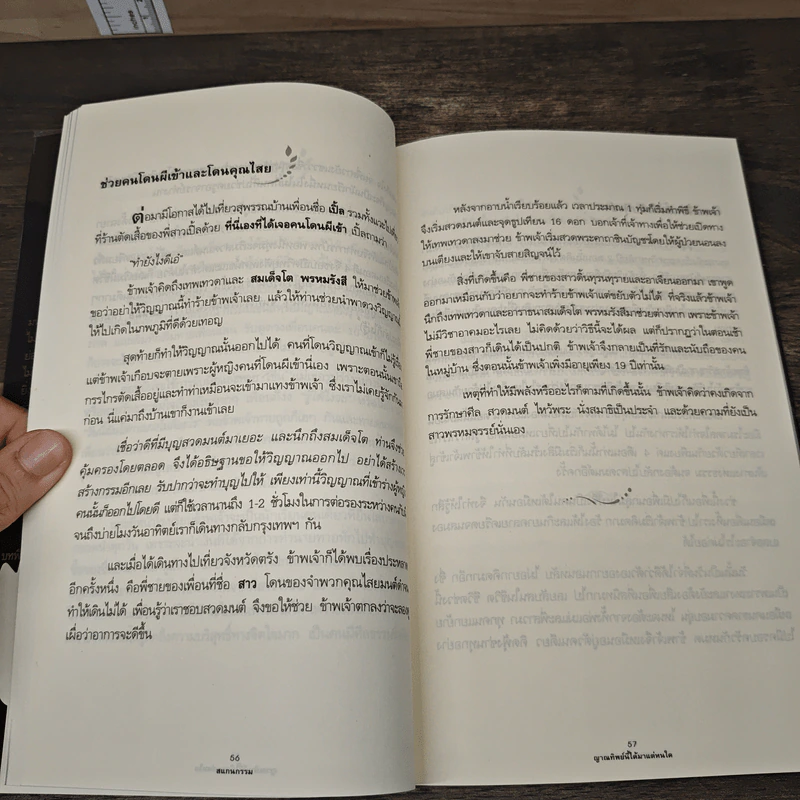 ช่วยคนโดนผีเข้าและโดนคุณไสย
ต่อมามีโอกาสได้ไปเที่ยวสุพรรณบ้านเพื่อนชื่อ เปิ้ล รวมทั้งแวะไป
ที่ร้านตัดเสื้อของพี่สาวเปิ้ลด้วย ที่นี่เองที่ได้เจอคนโดนผีเข้า เปิ้ลถามว่า
"ทำยังไงดีเอ๋"
ข้าพเจ้าคิดถึงเทพเทวดาและ สมเด็จโต พรหมรังสี ให้มาช่วยข้าพเจ้า
ขอว่าอย่าให้วิญญาณนี้ทำร้ายข้าพเจ้าเลย แล้วให้ท่านช่วยนำพาดวงวิญญาณ
ให้ไปเกิดในภพภูมิที่ดีด้วยเทอญ
สุดท้ายก็ทำให้วิญญาณนั้นออกไปได้ คนที่โดนวิญญาณเข้าก็ไม่รู้
แต่ข้าพเจ้าเกือบจะตายเพราะผู้หญิงคนที่โดนผีเข้านี่เอง เพราะตอนนั้นเขา
กรรไกรตัดเสื้ออยู่และทำท่าเหมือนจะเข้ามาแทงข้าพเจ้า ซึ่งเราไม่เคยรู้จักกัน
ก่อน นี่แค่มาถึงบ้านเขาก็งานเข้าเลย
เชื่อว่าดีที่มีบุญสวดมนต์มาเยอะ และนึกถึงสมเด็จโต ท่านจึงช่วย
คุ้มครองโดยตลอด จึงได้อธิษฐานขอให้วิญญาณออกไป อย่าได้สร้าง
สร้างกรรมอีกเลย รับปากว่าจะทำบุญไปให้ เพียงเท่านี้วิญญาณที่เข้าร่างผู้หญิง
คนนั้นก็ออกไปโดยดี แต่ก็ใช้เวลานานถึง 1-2 ชั่วโมงในการต่อรองระหว่างคนกับ
จนถึงบ่ายโมงวันอาทิตย์เราก็เดินทางกลับกรุงเทพฯ กัน
และเมื่อได้เดินทางไปเที่ยวจังหวัดตรัง ข้าพเจ้าก็ได้พบเรื่องประหลาด
อีกครั้งหนึ่ง คือพี่ชายของเพื่อนที่ชื่อ สาว โดนของจำพวกคุณไสยมนต์ดำ
ทำให้เดินไม่ได้ เพื่อนรู้ว่าเราชอบสวดมนต์ จึงขอให้ช่วย ข้าพเจ้าตกลงว่าจะลองดู
เผื่อว่าอาการจะดีขึ้น
56
สแกนกรรม
หลังจากอาบน้ำเรียบร้อยแล้ว เวลาประมาณ 1 ทุ่มก็เริ่มทำพิธี ข้าพเจ้า
จึงเริ่มสวดมนต์และจุดธูปเทียน 16 ดอก บอกเจ้าที่เจ้าทางเพื่อให้ช่วยเปิดทาง
ให้เทพเทวดาลงมาช่วย ข้าพเจ้าเริ่มสวดพระคาถาชินบัญชรโดยให้ผู้ป่วยนอนลง
บนเตียงและให้เขาจับสายสิญจน์ไว้
สิ่งที่เกิดขึ้นคือ พี่ชายของสาวดิ้นทุรนทุรายและอาเจียนออกมา เขาพูด
ออกมาเหมือนกับว่าอยากจะทำร้ายข้าพเจ้าแต่ขยับตัวไม่ได้ ที่จริงแล้วข้าพเจ้า
นึกถึงเทพเทวดาและอาราธนาสมเด็จโต พรหมรังสีมาช่วยต่างหาก เพราะข้าพเจ้า
ไม่มีวิชาอาคมอะไรเลย ไม่คิดด้วยว่าวิธีนี้จะได้ผล แต่ก็ปรากฏว่าในตอนเช้า
พี่ชายของสาวก็เดินได้เป็นปกติ ข้าพเจ้าจึงกลายเป็นที่รักและนับถือของคน
ในหมู่บ้าน ซึ่งตอนนั้นข้าพเจ้าเพิ่งมีอายุเพียง 19 ปีเท่านั้น
เหตุที่ทำให้มีพลังหรืออะไรก็ตามที่เกิดขึ้นนั้น ข้าพเจ้าคิดว่าคงเกิดจาก
การรักษาศีล สวดมนต์ ไหว้พระ นั่งสมาธิเป็นประจำ และด้วยความที่ยังเป็น
สาวพรหมจรรย์นั่นเอง
57
ญาณทิพย์นี้ได้มาแต่หนใด